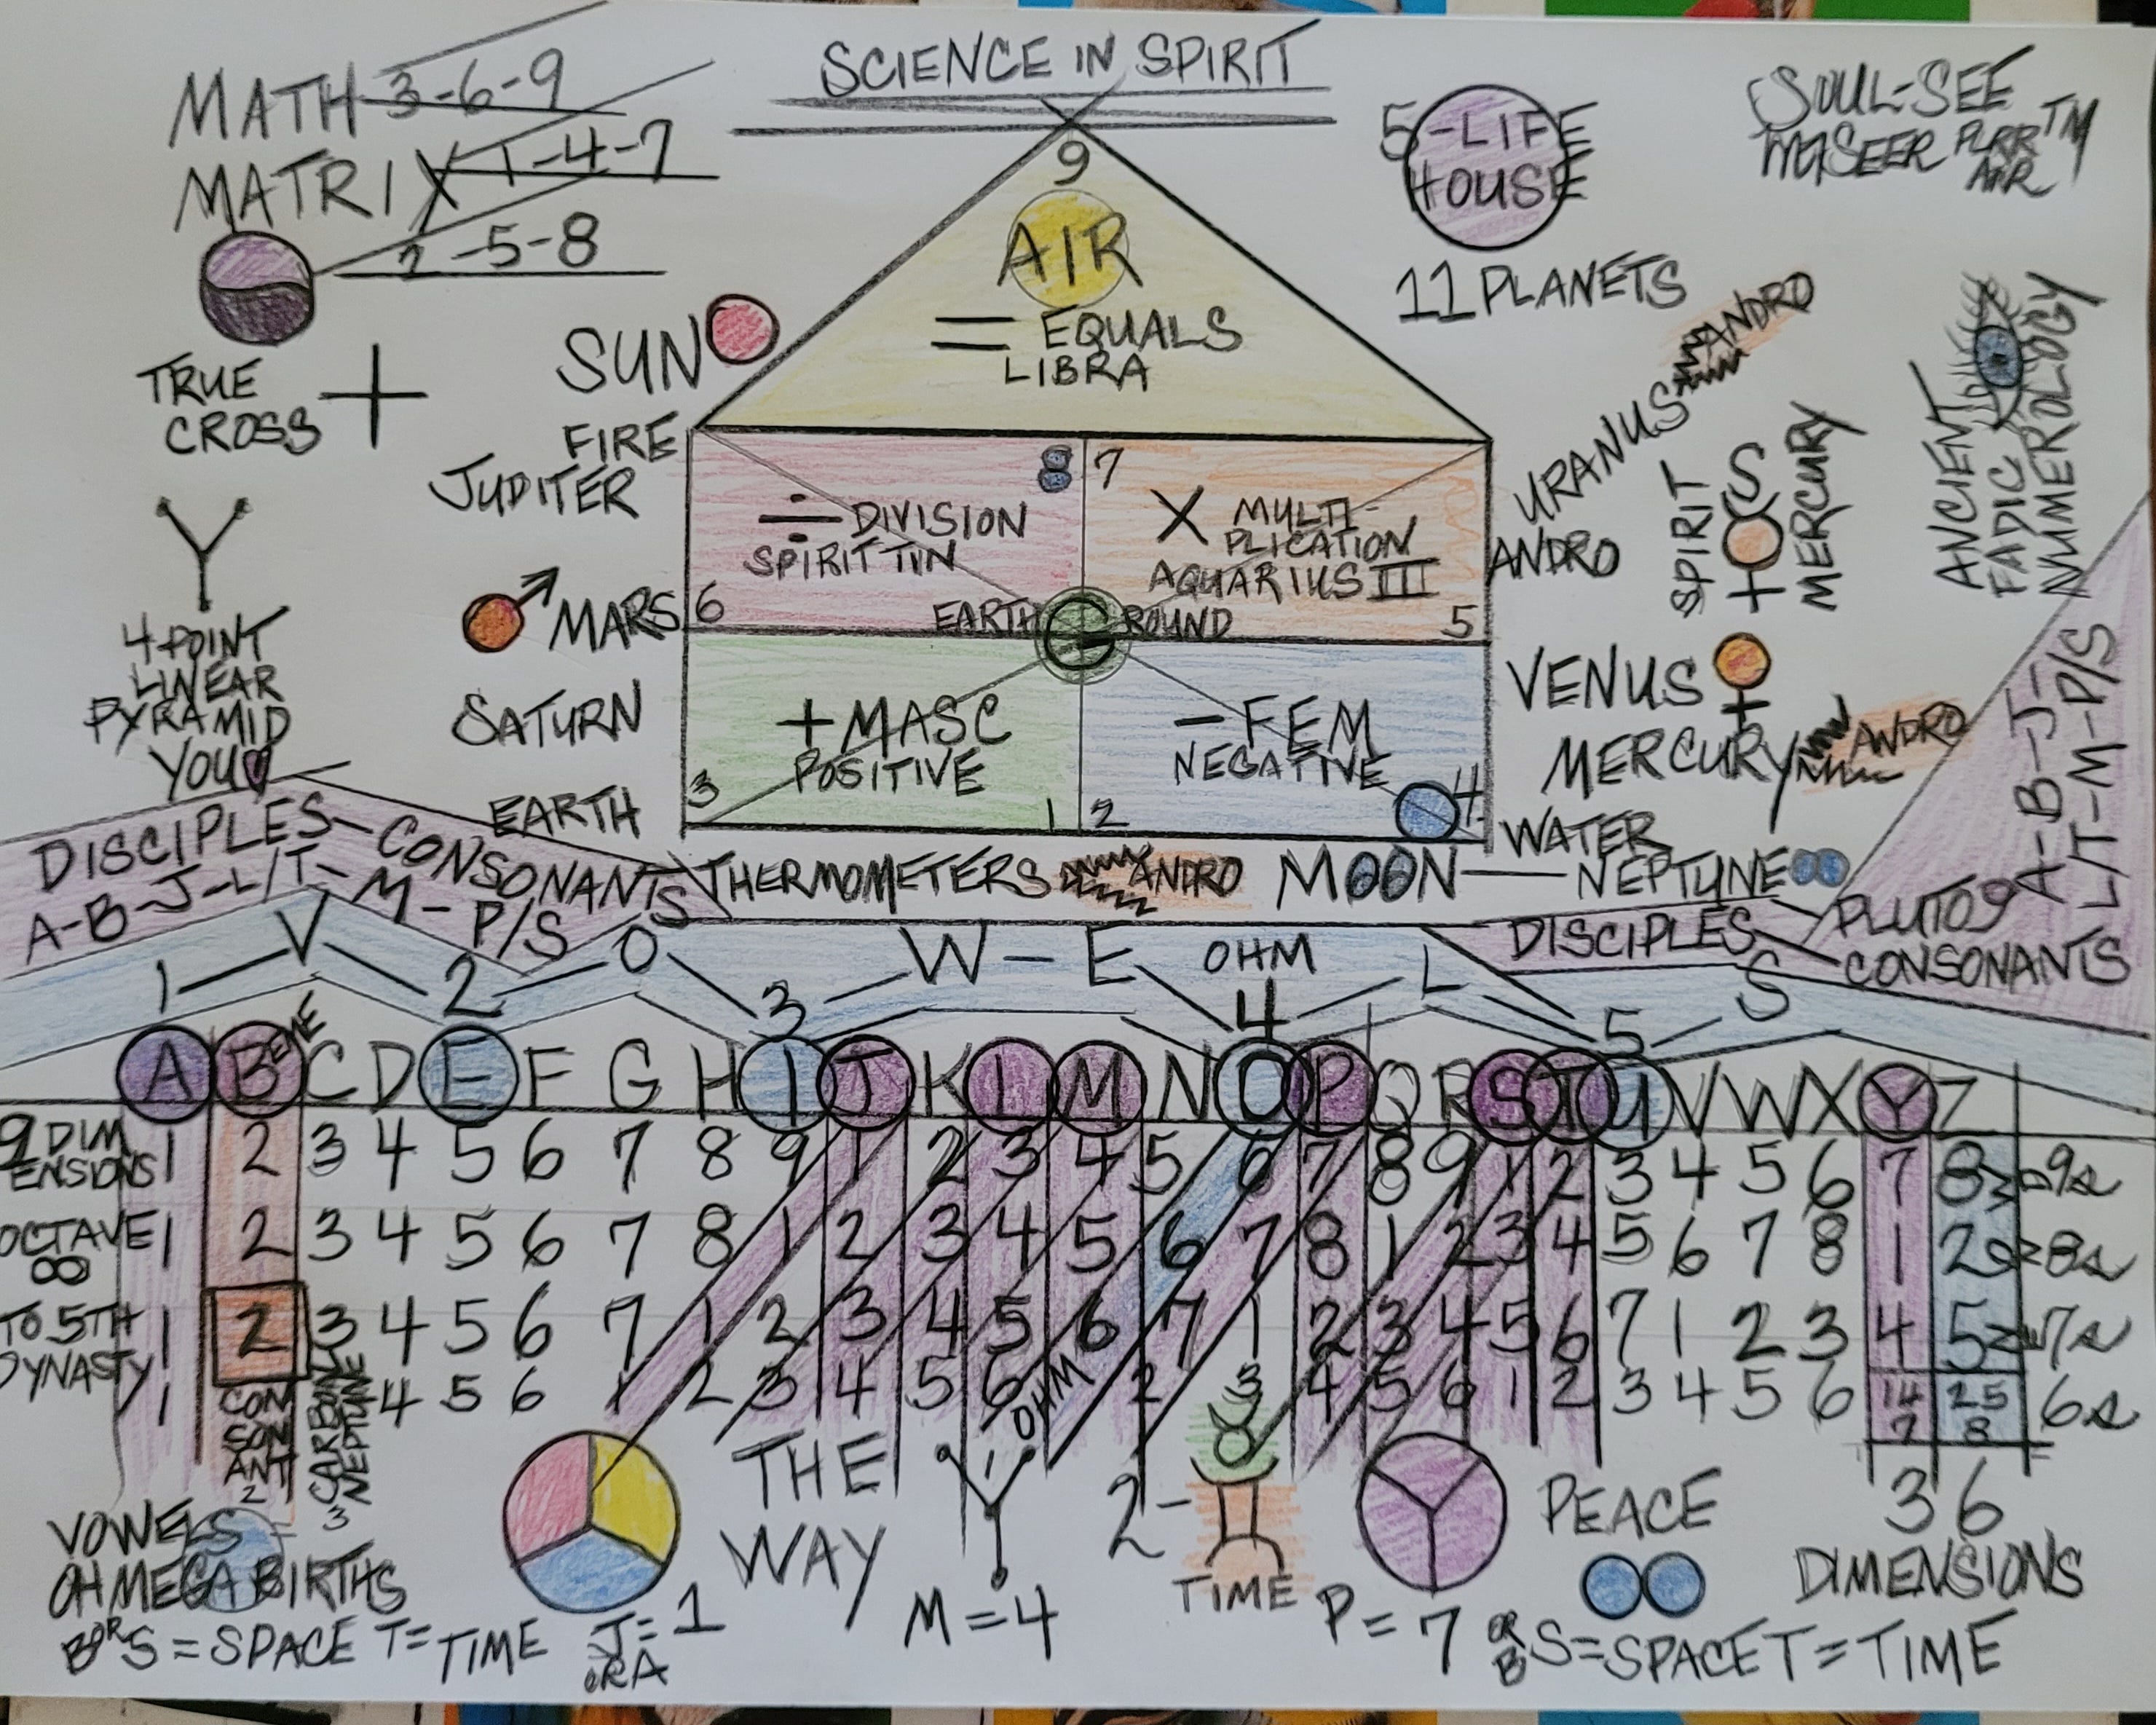 SCIENCE IN SPIRIT
MATH 3-6-9
MATRIX 1-4-7
2-5-8
TRUE
CROSS +
Y
4 POINT
LINEAR
PYRAMID
YOU
5-LIFE
HOUSE
11 PLANETS
SOUL-SEE
TM
AIR
ANCIENT
FADIC
NUMEROLOGY
9
AIR
= EQUALS
LIBRA
SUN
FIRE
JUDITER
MARS
SATURN
EARTH
8
÷ DIVISION
SPIRIT TIN
6
7
X MULTI-
PLICATION
AQUARIUS III
5
EARTH G ROUND
+ MASC
POSITIVE
3
1
- FEM
NEGATIVE
2
4
URANUS ANDRO
ANDRO
SPIRIT
MERCURY
VENUS
MERCURY ANDRO
WATER
THERMOMETERS ANDRO MOON — NEPTUNE
PLUTO 9
DISCIPLES - CONSONANTS
A-B-J-L/T-M-P/S
DISCIPLES
CONSONANTS
A-B-J-
L/T-M-P/S
1 - V - 2 - O - 3 - W - E - 4 - L - 5 - S
OHM
A B C D E F G H I J K L M N O P Q R S T U V W X Y Z
9 DIM
ENSIONS 1 2 3 4 5 6 7 8 9 1 2 3 4 5 6 7 8 9 1 2 3 4 5 6 7 8 9s
OCTAVE 1 2 3 4 5 6 7 8 1 2 3 4 5 6 7 8 1 2 3 4 5 6 7 8 1 2 8s
∞
TO 5TH 1 2 3 4 5 6 7 1 2 3 4 5 6 7 1 2 3 4 5 6 7 1 2 3 4 5 7s
DYNASTY
1 4 5 6 1 2 3 4 5 6 OHM 2 3 4 5 6 1 2 3 4 5 6 14 25 6s
7 8
CON
SON
ANT
2
CARBON
NEPTUNE
3
VOWELS
OHMEGA BIRTHS
B OR S = SPACE T = TIME
J = 1
OR A
THE
WAY
M = 4
2 -
TIME
P = 7
PEACE
36
DIMENSIONS
OR B S = SPACE T = TIME